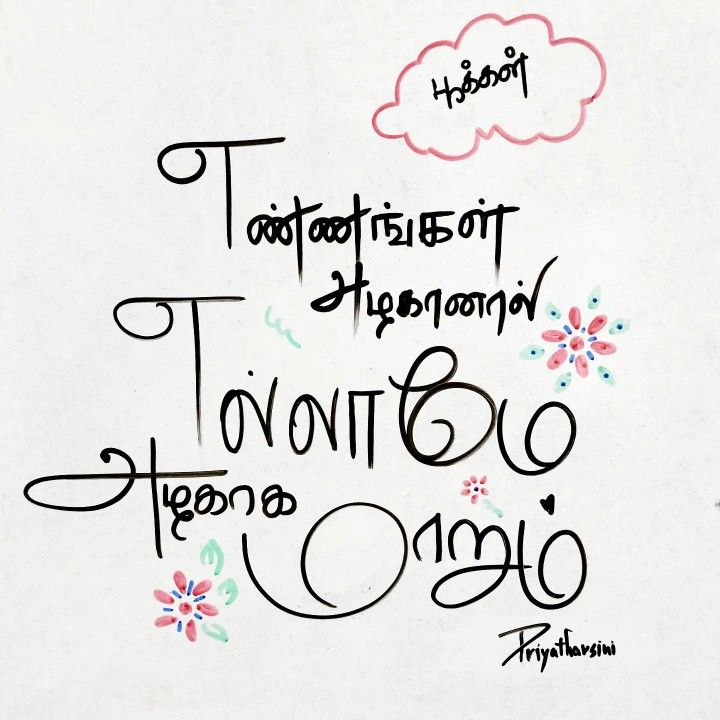 பூக்கள்
எண்ணங்கள்
அழகானால்
எல்லாமே
அழகாக மாறும்
Priyatharsini